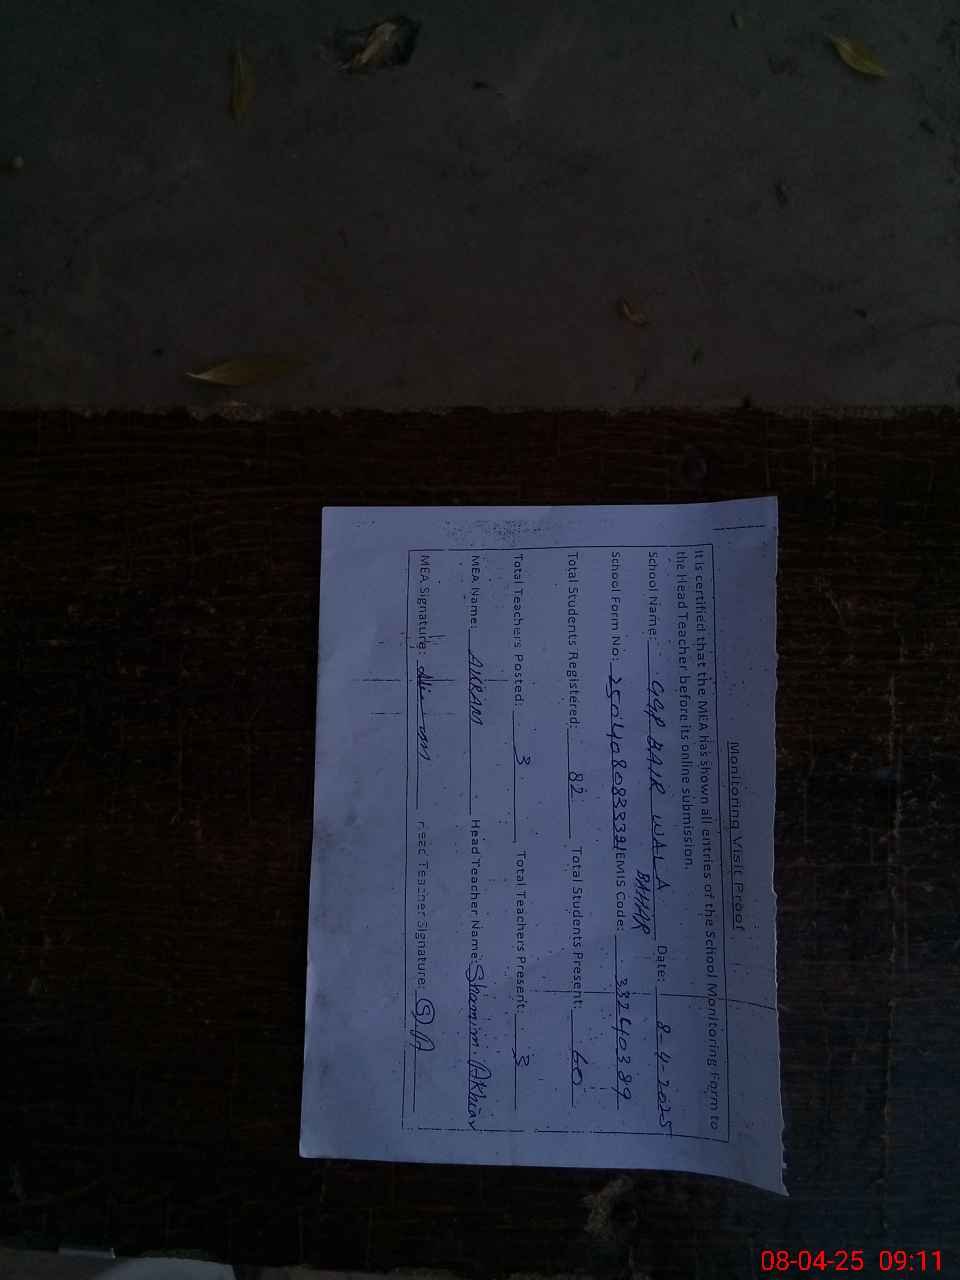 Monitoring Visit Proof
It is certified that the MEA has shown all entries of the School Monitoring Form to
the Head Teacher before its online submission.
School Name: GGP BAIR WALA BAHAR Date: 8-4-2025
School Form No: EMIS Code: 33240389
Total Students Registered: 82 Total Students Present: 60
Total Teachers Posted: 3 Total Teachers Present: 3
MEA Name: AKRAM Head Teacher Name: Shamim. Akhtar
MEA Signature: Head Teacher Signature: S.A
08-04-25 09:11